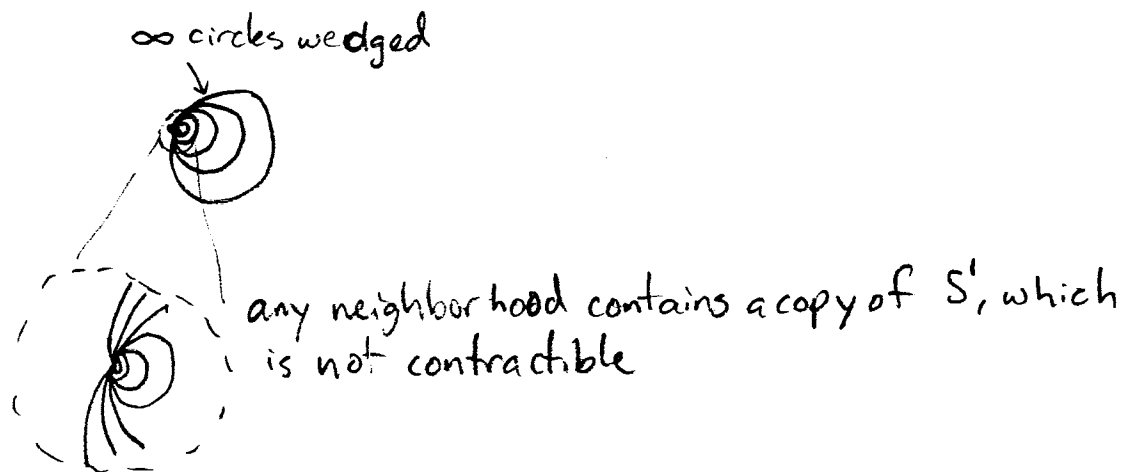 ∞ circles wedged
any neighborhood contains a copy of S¹, which
is not contractible